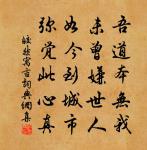 吾道本無我
未曾嫌世人
如今到城市
弥覺此心真
皎然寓言詞典網集